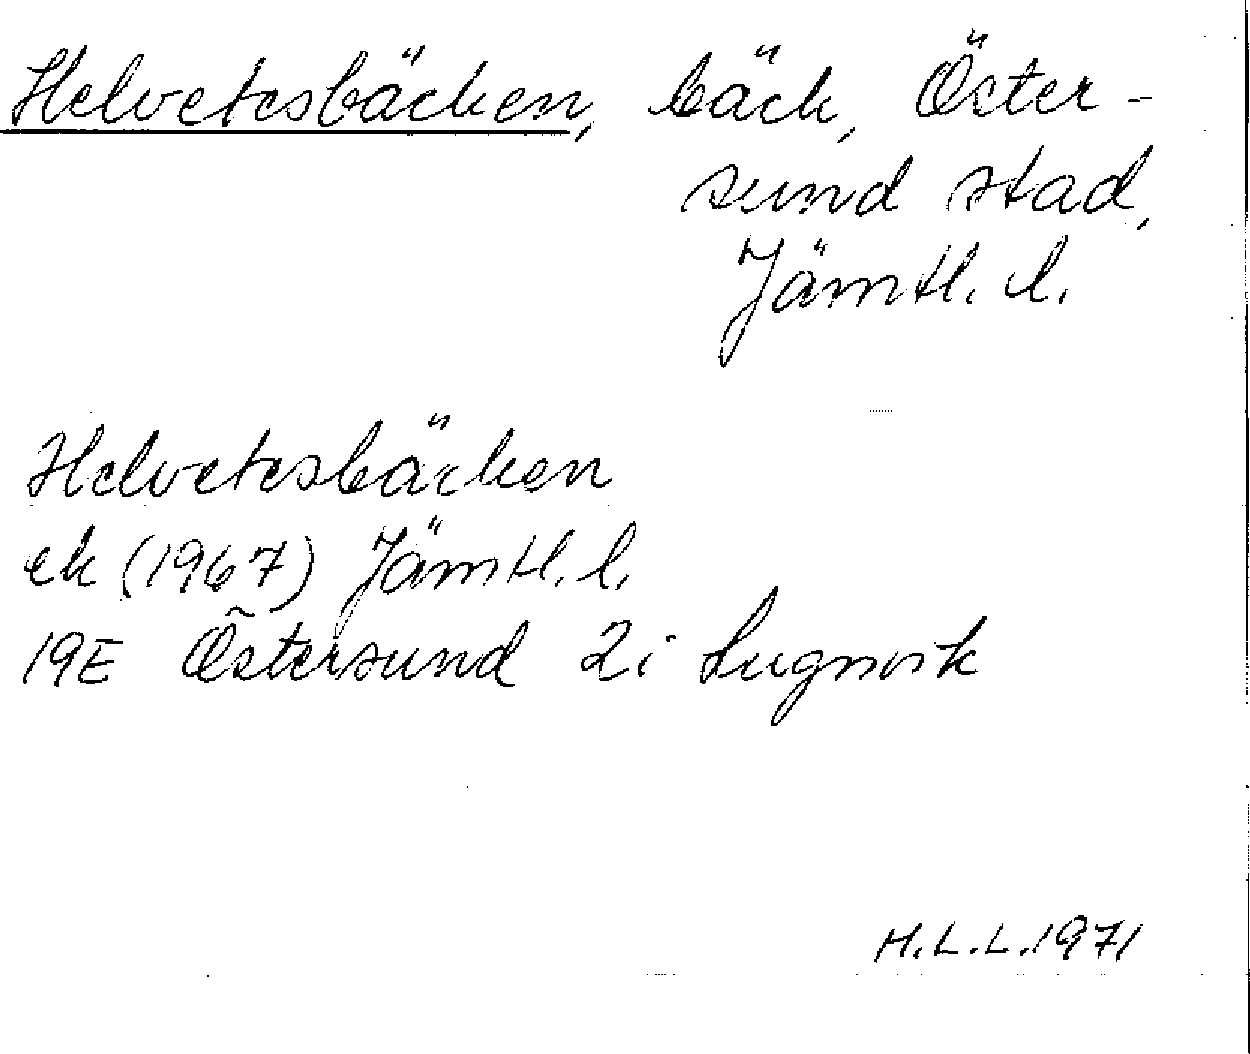 Helvetesbäcken, bäck, Öster-
sund stad,
Jämtl. l.
Helvetesbäcken
ek (1967) Jämtl. l.
19E Östersund 2i Lugnvik
H.L.L.1971